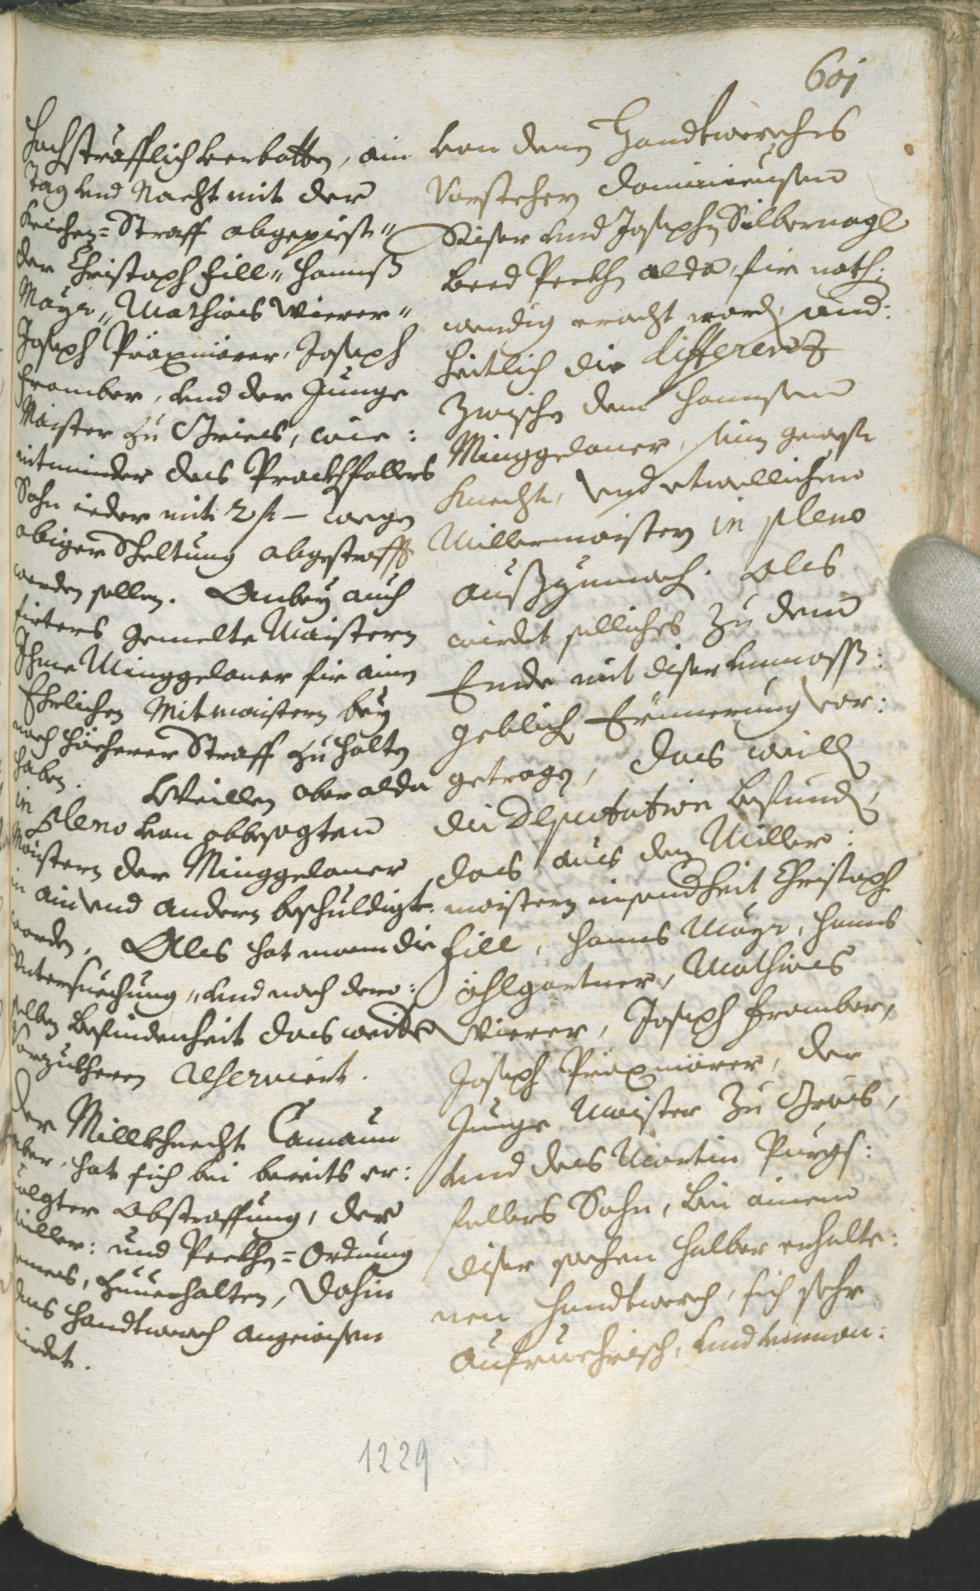 601
hochsträfflich verbotten, ain
Tag und Nacht mit der
Keichen=Straff abgepiest"
der Christoph Fill" Hannß
Mayr" Mathias Wierer"
Joseph Praxmarer, Joseph
Framber, und der Junge
Maister zu Gries, wie:
mitminder des Prackhsfallers
Sohn ieder mit 2 f – wegen
obiger Scheltung abgestrafft
werden sollen. Anbey auch
firters gemelte Maistern
Ihme Minggelaner fir ainen
Ehrlichen Mitmaistern bey
noch höcherer Straff zu halten
haben. Weillen aber alda
in Pleno von obbesagten
Maistern der Minggelaner
in ain und andern beschuldigt
worden, Alles hat mann die
Untersuechung, und nach dero:
selben Befindenheit das weitere
vorzukheren reserviert.
Der Millkhnecht Camaun
aber, hat sich bei bereits er:
folgter Abstraffung, der
Miller: und Peckhen=Ordnung
gemeß, zuuerhalten, dahin
das Handtwerch angewisen
wirdet.
von denen Handtwerchs
Vorstehern Dominicusen
Riser und Josephen Silbernagl
beed Peckhen alda, fir noth:
wendig eracht worden, aind:
heitlich die differenz
zwischen dem Hannsen
Minggelaner, seinen gewesten
Knecht, und etwellichen
Millermaistern in pleno
außzumachen. Als
wirdet selliches zu dem
Ende mit diser unmasß:
geblichen Erinnerung vor:
getragen, das weillen
die Deputation befunden,
das aus den Miller:
maistern insonderheit Christoph
Fill, Hanns Mayr, Hanns
öhlgartner, Mathias
Wierer, Joseph Framber,
Joseph Praxmarer, der
Junge Maister zu Gries,
und des Martin Purgs:
fallers Sohn, bei ainem
diser sachen halber enhalte:
nen Handtwerch, sich sehr
aufruehrisch, und
1229